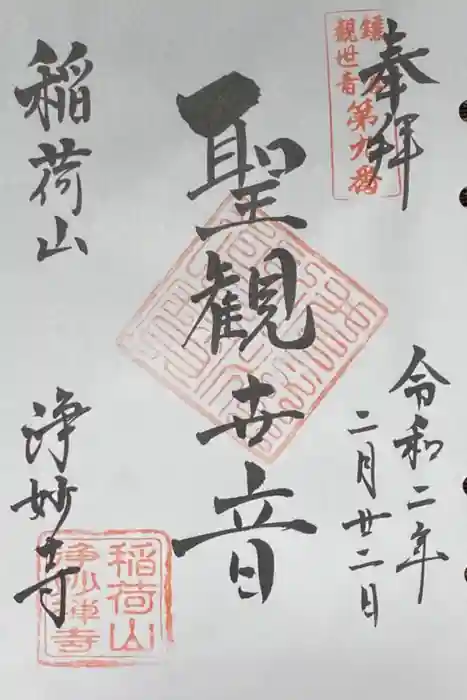 奉拝
鎌倉
観世音第九番
令和二年
二月廿二日
聖観世音
稲荷山
浄妙寺
稲荷山
浄妙禅寺